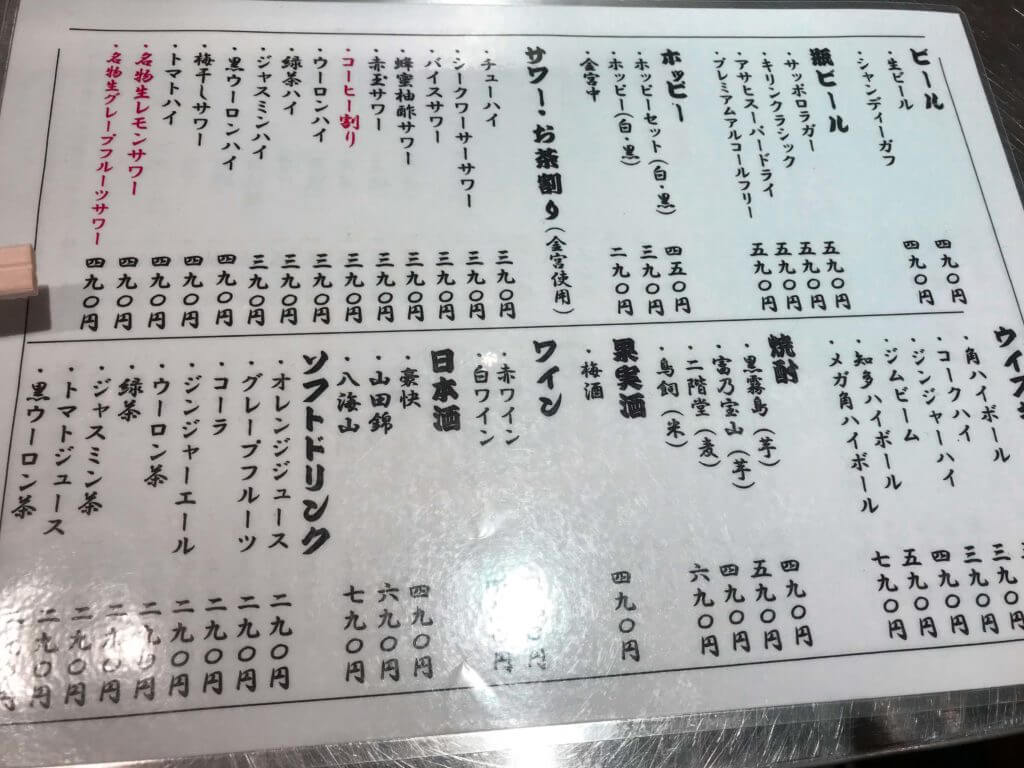 ビール
・生ビール 四九〇円
・シャンディーガフ 四九〇円
瓶ビール
・サッポロラガー 五九〇円
・キリンクラシック 五九〇円
・アサヒスーパードライ 五九〇円
・プレミアムアルコールフリー 五九〇円
ホッピー
・ホッピーセット(白・黒) 四五〇円
・ホッピー(白・黒) 三九〇円
・金宮中 二九〇円
サワー・お茶割り(金宮使用)
・チューハイ 三九〇円
・シークワーサーサワー 三九〇円
・バイスサワー 三九〇円
・蜂蜜柚酢サワー 三九〇円
・赤玉サワー 三九〇円
・コーヒー割り 三九〇円
・ウーロンハイ 三九〇円
・緑茶ハイ 三九〇円
・ジャスミンハイ 三九〇円
・黒ウーロンハイ 四九〇円
・梅干しサワー 四九〇円
・トマトハイ 四九〇円
・名物生レモンサワー 四九〇円
・名物生グレープフルーツサワー 四九〇円
ウイス
・角ハイボール
・コークハイ 三九〇円
・ジンジャーハイ 三九〇円
・ジムビーム 四九〇円
・知多ハイボール 五九〇円
・メガ角ハイボール 七九〇円
焼酎
・黒霧島(芋) 四九〇円
・富乃宝山(芋) 五九〇円
・二階堂(麦) 四九〇円
・鳥飼(米) 六九〇円
果実酒
・梅酒 四九〇円
ワイン
・赤ワイン 円
・白ワイン 円
日本酒
・豪快 四九〇円
・山田錦 六九〇円
・八海山 七九〇円
ソフトドリンク
・オレンジジュース 二九〇円
・グレープフルーツ 二九〇円
・コーラ 二九〇円
・ジンジャーエール 二九〇円
・ウーロン茶 二九〇円
・緑茶 二九〇円
・ジャスミン茶 二九〇円
・トマトジュース 二九〇円
・黒ウーロン茶 二九〇円